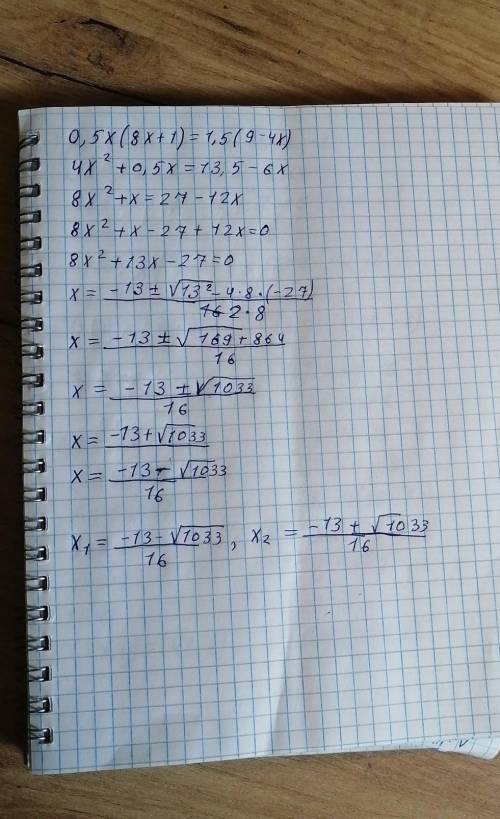 0,5x(8x+1)=1,5(9-4x)
4x²+0,5x=13,5-6x
8x²+x=27-12x
8x²+x-27+12x=0
8x²+13x-27=0
x = (-13±√(13²-4·8·(-27)))/(2·8)
x = (-13±√(169+864))/16
x = (-13±√1033)/16
x = -13+√1033
x = (-13-√1033)/16
x₁ = (-13-√1033)/16, x₂ = (-13+√1033)/16